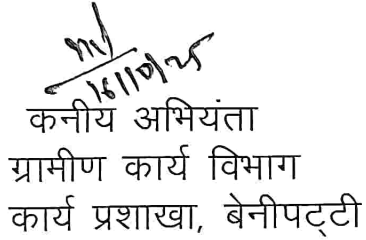 16/10/25
कनीय अभियंता
ग्रामीण कार्य विभाग
कार्य प्रशाखा, बेनीपट्टी